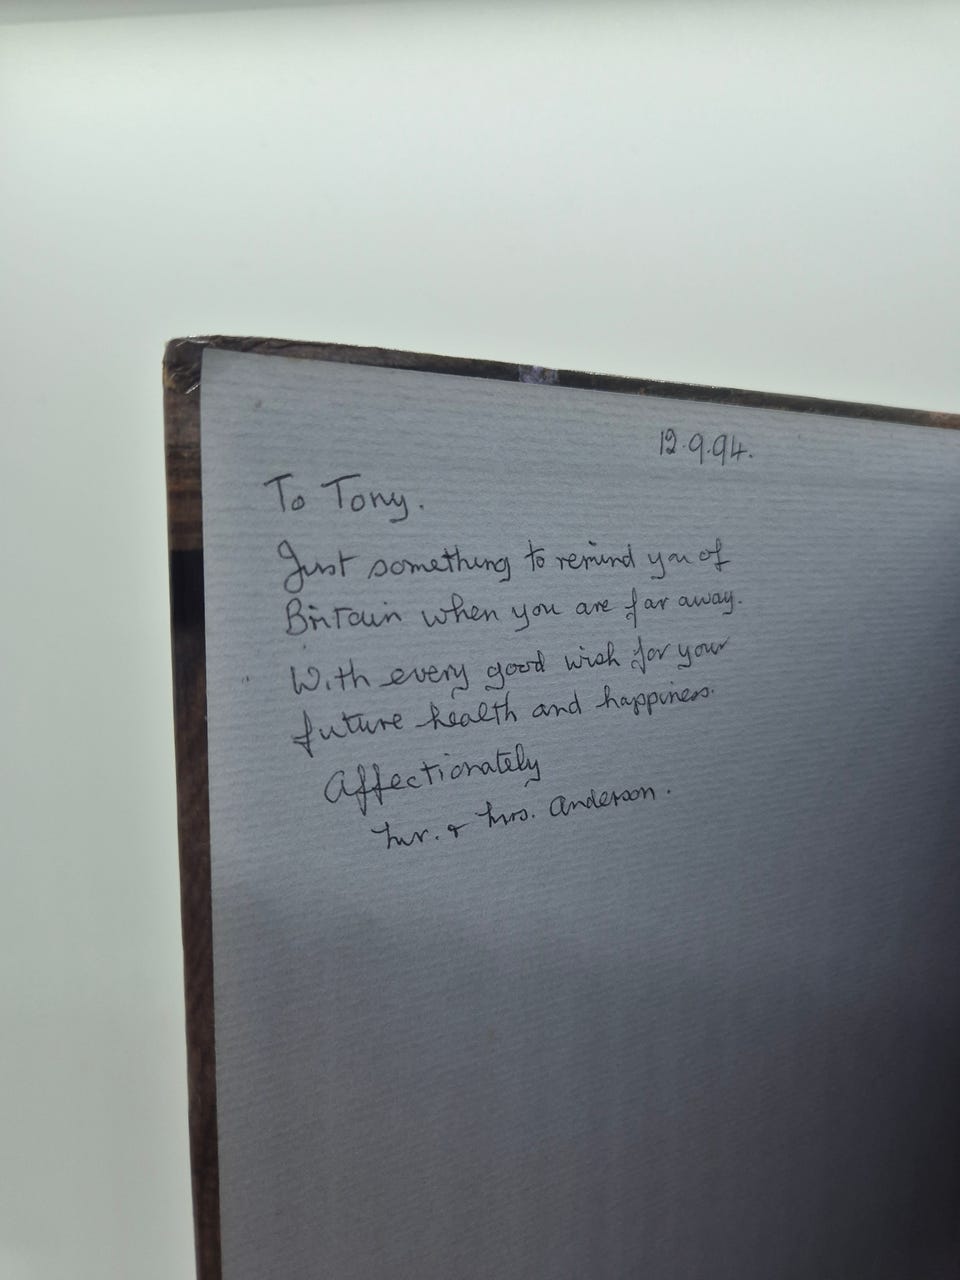 12.9.94.
To Tony.
Just something to remind you of
Britain when you are far away.
With every good wish for your
future health and happiness.
Affectionately
Mr. & Mrs. Anderson.